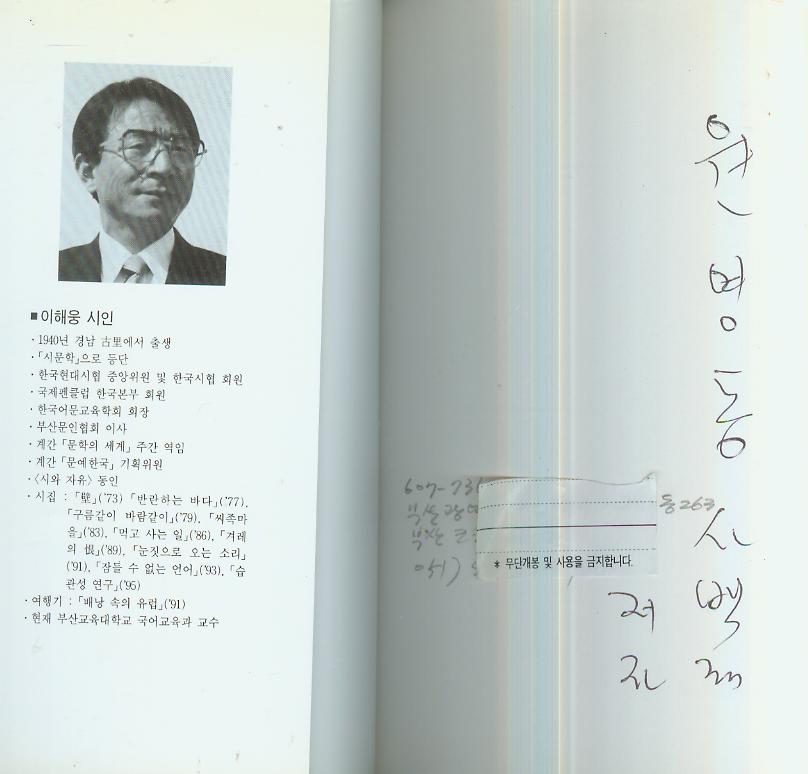 ■ 이해웅 시인
· 1940년 경남 古里에서 출생
· 「시문학」으로 등단
· 한국현대시협 중앙위원 및 한국시협 회원
· 국제펜클럽 한국본부 회원
· 한국어문교육학회 회장
· 부산문인협회 이사
· 계간 「문학의 세계」 주간 역임
· 계간 「문예한국」 기획위원
· 〈시와 자유〉 동인
· 시집 : 「壁」('73) 「반란하는 바다」('77),
「구름같이 바람같이」('79), 「씨족마
을」('83), 「먹고 사는 일」('86), 「겨레
의 恨」('89), 「눈짓으로 오는 소리」
('91), 「잠들 수 없는 언어」('93), 「습
관성 연구」('95)
· 여행기 : 「배낭 속의 유럽」('91)
· 현재 부산교육대학교 국어교육과 교수
원병동
저
607-73
동263
* 무단개봉 및 사용을 금지합니다.